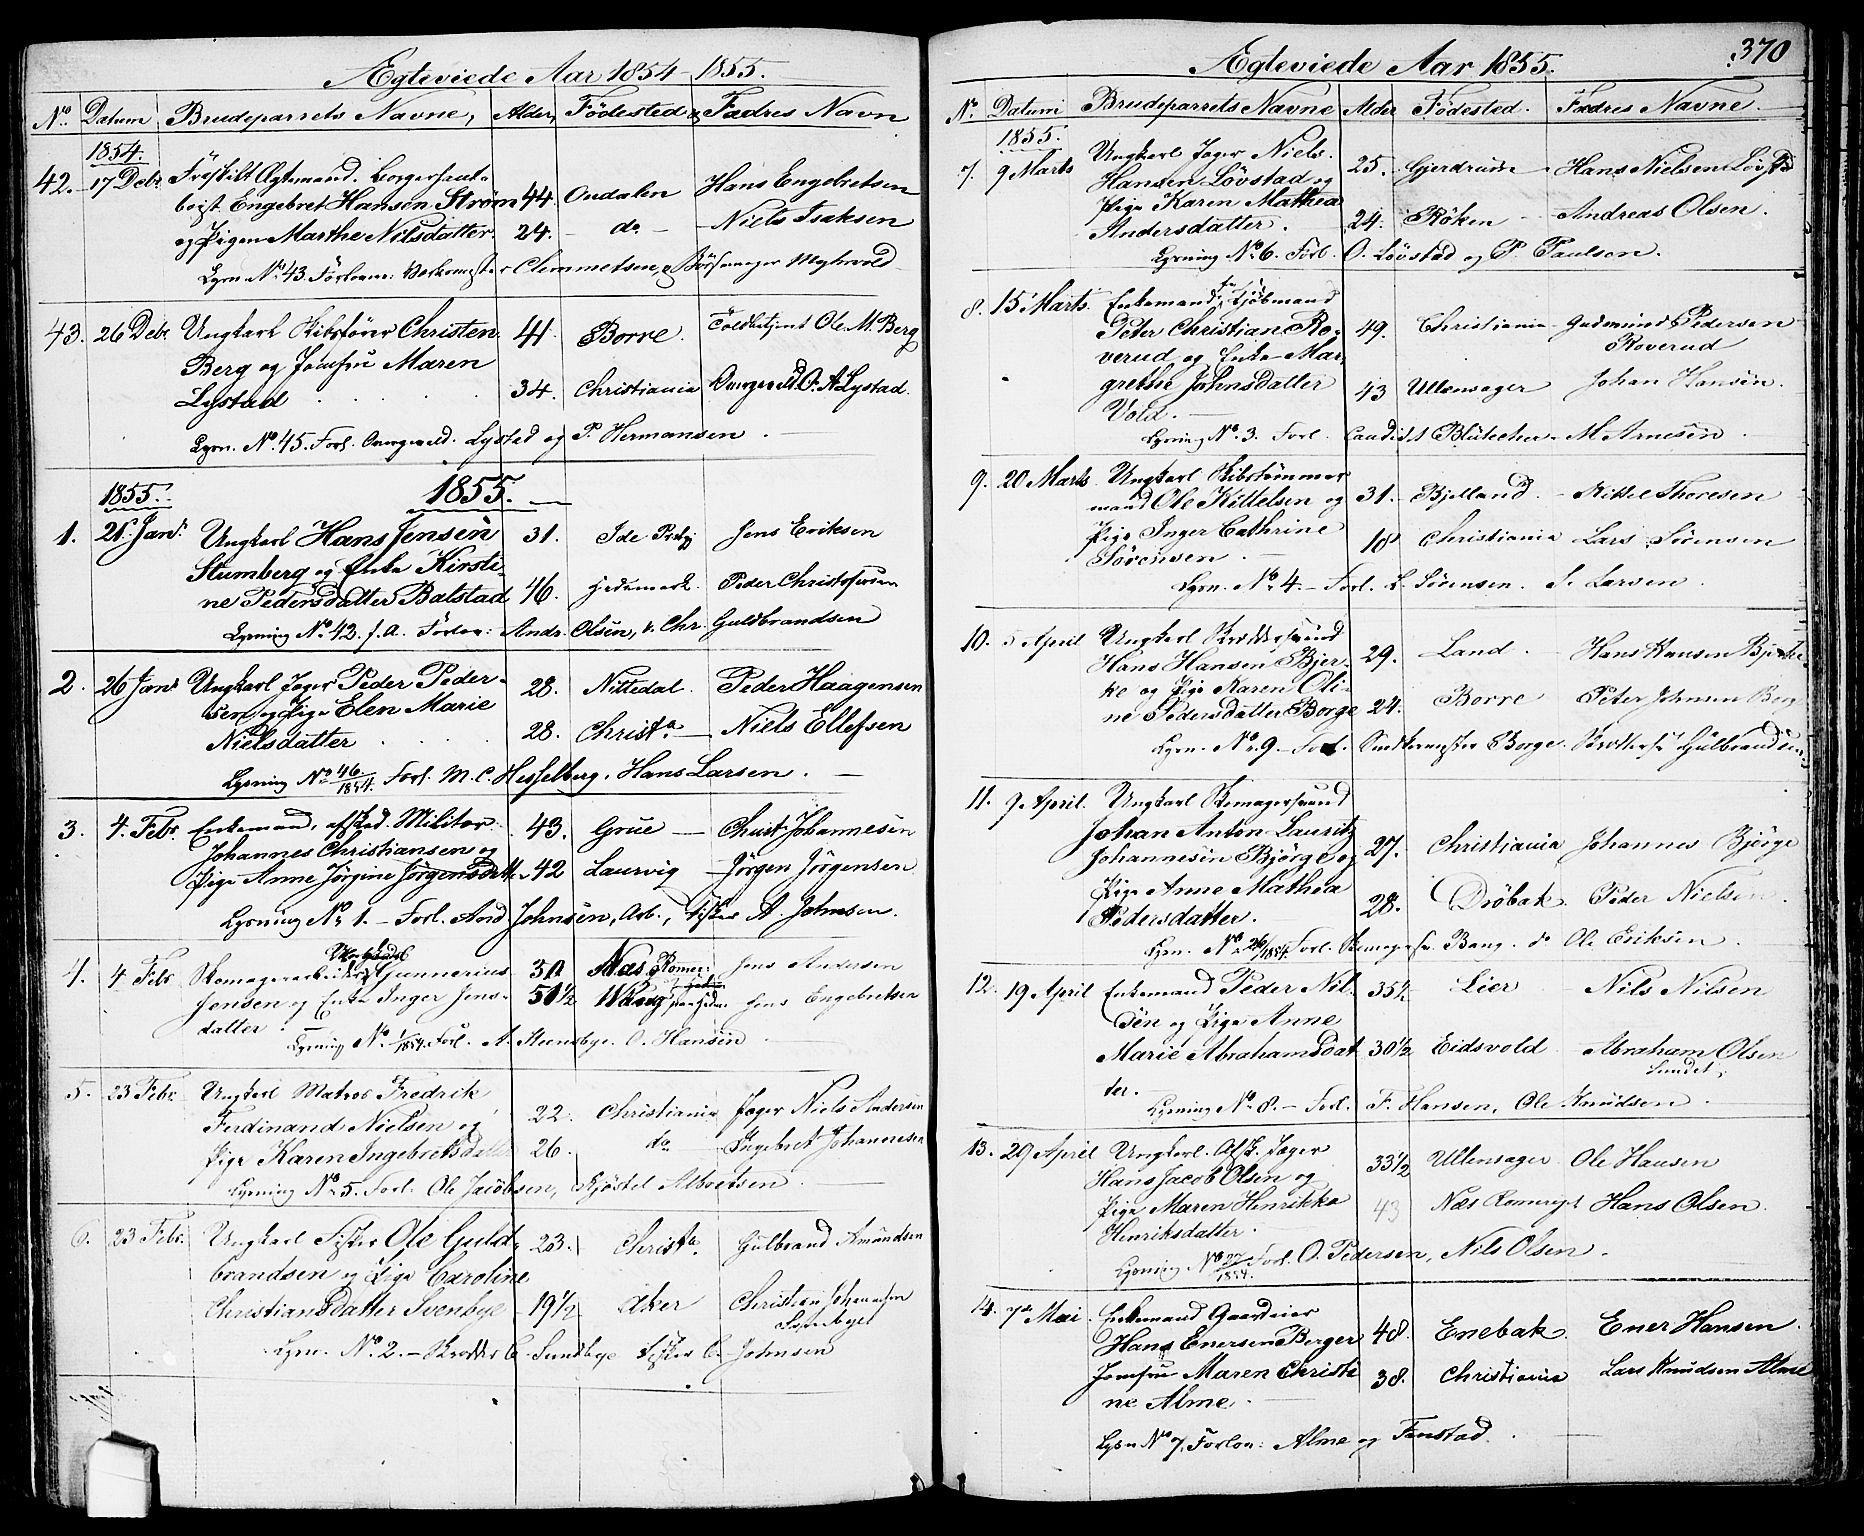 Ægteviede Aar 1854-1855.
No. Datum Brudeparrets Navne, Alder, Fødested & Fædres Navn
1854.
42. 17 Debr. Fraskilt Ægtemand.
Engebret Hansen Strøm 44. Oudalen Hans Engebretsen
og Pigen Marthe Nilsdatter. 24. do Niels Isaksen
Lysn. No. 43. Forlovere: Clemmetsen, & Børsemager Myhrvold
43. 26 Debr. Ungkarl Skibsfører Christen 41. Borre. Toldbetjent Ole M. Berg
Berg og Jomfru Maren
Lystad 34. Christiania O. A. Lystad.
Lysn. No. 45. Forl. Lysted og P. Hermansen.
1855. 1855.
1. 21 Jan. Ungkarl Hans Jensen 31. Ide Jens Eriksen
Stumberg og Enke Kirsti-
ne Pedersdatter Balstad 46. Hedemark. Peder Christophersen
Lysning No. 42. f. A. Forlov: Andr. Olsen, & Chr. Guldbrandsen
2. 26 Jan. Ungkarl Jæger Peder Peder- 28. Nittedal. Peder Haagensen
sen og Pige Elen Marie
Nielsdatter 28. Christa. Niels Ellefsen
Lysning No. 46/1854. Forl. M. C. Hesselberg. Hans Larsen.
3. 4. Febr. Enkemand, afsked. Militær 43. Grue Christ. Johannesen
Johannes Christiansen og
Pige Anne Jørgine Jørgensdtt. 42 Laurvig Jørgen Jørgensen
Lysning No. 1. Forl. And. Johnsen, Arb., Fisker A. Johnsen.
4. 4 Febr Skomagerarbeider Ungkarl Gunnerius 30 Næs Romer: Jens Andersen
Jensen og Enke Inger Jens- 50 1/2 Wang Jens Engebretsen
datter.
Lysning No. 1/1854. Forl. A. Steensbye. O. Hansen
5. 23 Febr. Ungkarl Matros Fredrik
Ferdinand Nielsen og 22. Christiania Jæger Niels Andersen
Pige Karen Ingebretsdatter 26. do Ingebret Johannesen
Lysning No. 5. Forl: Ole Jacobsen, Kjøstel Albretsen.
6. 23 Febr. Ungkarl Fisker Ole Guld- 23. Christa. Gulbrand Amundsen
brandsen og Pige Caroline
Christiansdatter Svenbye 19 1/2 Aker Christen Johannesen
Svenbye
Lysn. No. 2. Skrædder C. Sundbye Fisker C. Johnsen
Ægteviede Aar 1855. 370
No. Datum Brudeparrets Navne Alder Fødested. Fædres Navne.
1855.
7. 9 Marts Ungkarl Jæger Niels 25. Gjerdrum Hans Nielsen Løvstad
Hansen Løvstad og
Pige Karen Mathea
Andersdatter. 24. Røken Andreas Olsen.
Lysning No. 6. Forl. O. Løvstad og P. Paulsen.
8. 15 Marts. Enkemand, Kjøbmand
Peter Christian Ro- 49. Christiania Gudmund Pedersen
verud og Enke Mar- Roverud
grethe Johnsdatter 43 Ullensager Johan Hansen.
Vold.
Lysning No. 3. Forl. Candidt Blütecher M. Arnesen.
9. 20 Marts. Ungkarl Skibstømmer
mand Ole Kittelsen og 31. Bjelland. Kittel Thoresen
Pige Inger Cathrine
Sørensen 18 Christiania Lars Sørensen
Lysn. No. 4. Forl. L. Sørensen. S. Larsen.
10. 5 April Ungkarl Skræddersvend
Hans Hansen Bjer- 29. Land. Hans Hansen Bjerke
ke og Pige Karen Oli-
ne Pedersdatter Borge 24. Borre Peter Johnsen
Lysn. No. 9. Forl. Snedkermester Borge. Gulbrandsen
11. 9. April. Ungkarl Skomagersvend
Johan Anton Lauritz
Johannesen Bjørge og 27. Christiania Johannes Bjørge
Pige Anne Mathea
Pedersdatter. 28. Drøbak Peder Nielsen.
Lysn. No. 26/1854. Forl. Skomagersv. Bang. do Ole Eriksen.
12. 19 April Enkemand Peder Nil- 35 1/2 Lier Nils Nilsen
sen og Pige Anne
Marie Abrahamsdat- 30 1/2 Eidsvold Abraham Olsen
ter. Sundet.
Lysning No. 8. Forl. F. Hansen, Ole Knudsen.
13. 29 April Ungkarl. Afsk. Jæger
Hans Jacob Olsen og 33 1/2 Ullensager Ole Hansen
Pige Maren Henrikke 43 Næs Romerige Hans Olsen.
Henriksdatter.
Lysning No. 27/1854. Forl. O. Pedersen, Nils Olsen.
14. 7de Mai. Enkemand Gaardeier
Hans Enersen Berger 48. Enebak. Ener Hansen.
Jomfru Maren Christi- 38. Christiania Lars Knudsen Alme
ne Alme.
Lysn No 7. Forlov: Alme og Fenstad.